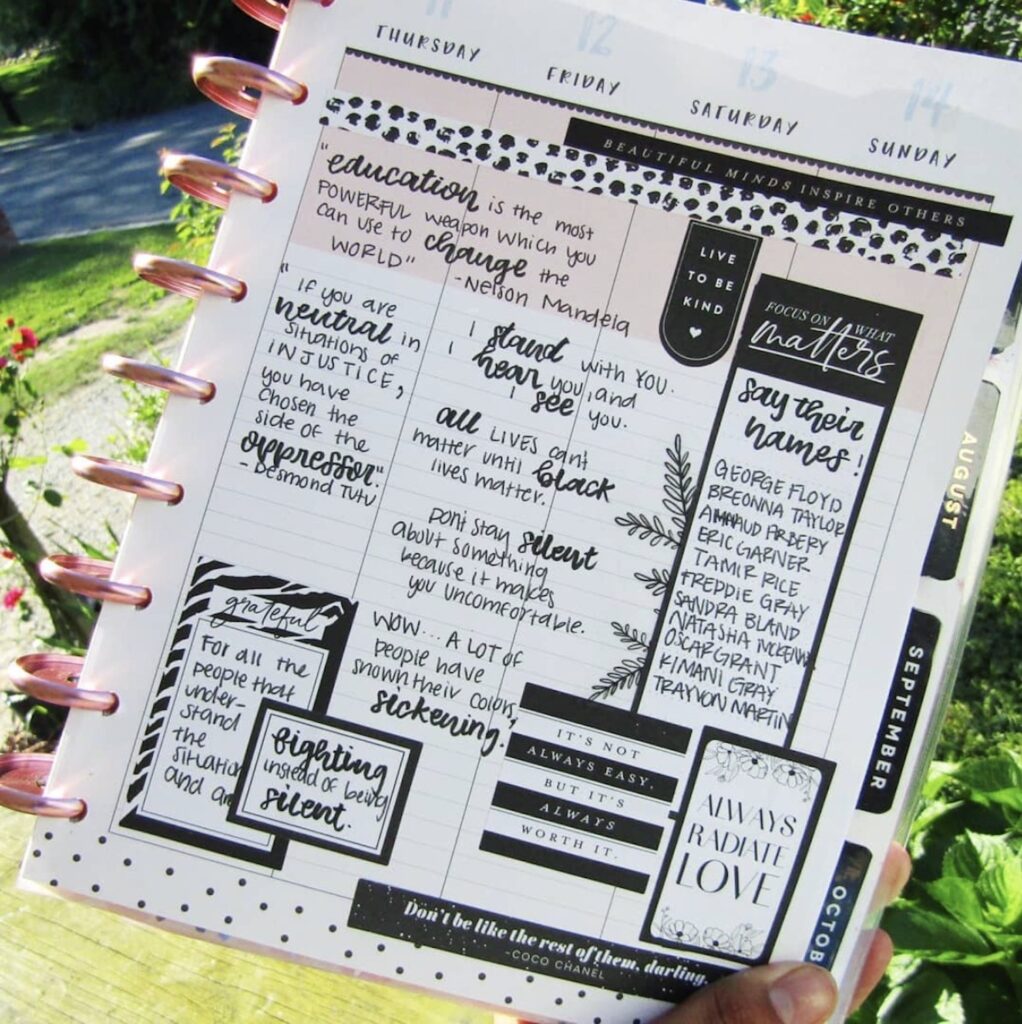 11
12
13
14
THURSDAY
FRIDAY
SATURDAY
SUNDAY
BEAUTIFUL MINDS INSPIRE OTHERS
"education is the most
POWERFUL weapon which you
can use to change the
WORLD"
-Nelson Mandela
"IF you are
neutral in
situations of
INJUSTICE,
you have
chosen the
side of the
oppressor."
- Desmond Tutu
I stand with YOU.
I hear you, and
I see you.
all LIVES cant
matter until black
lives matter.
Dont stay silent
about something
because it makes
you uncomfortable.
WOW... A LOT OF
people have
shown their colors,
sickening.
LIVE
TO BE
KIND
FOCUS ON WHAT
matters
say their
names!
GEORGE FLOYD
BREONNA TAYLOR
AHMAUD ARBERY
ERIC GARNER
TAMIR RICE
FREDDIE GRAY
SANDRA BLAND
NATASHA MCKENNA
OSCAR GRANT
KIMANI GRAY
TRAYVON MARTIN
grateful
For all the
people that
under-
stand
the
situation
and are
fighting
instead of being
silent.
IT'S NOT
ALWAYS EASY,
BUT IT'S
ALWAYS
WORTH IT.
ALWAYS
RADIATE
LOVE
Don't be like the rest of them, darling.
-COCO CHANEL
AUGUST
SEPTEMBER
OCTOB